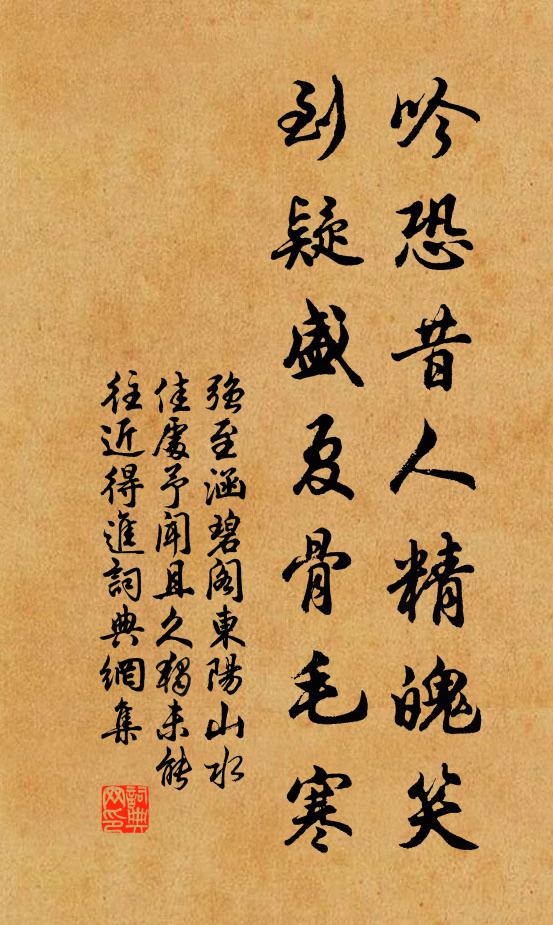 吟恐昔人精魄笑
到疑盛夏骨毛寒
強至涵碧阁東陽山水
佳處予聞且久獨未能
往近得進詞典網集
詞典
网印